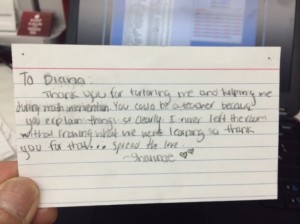 To Briana:
Thank you for tutoring me and helping me
during math intervention. You could be a teacher because
you explain things so clearly. I never left the room
without knowing what we were learning so thank
you for that... spread the love.